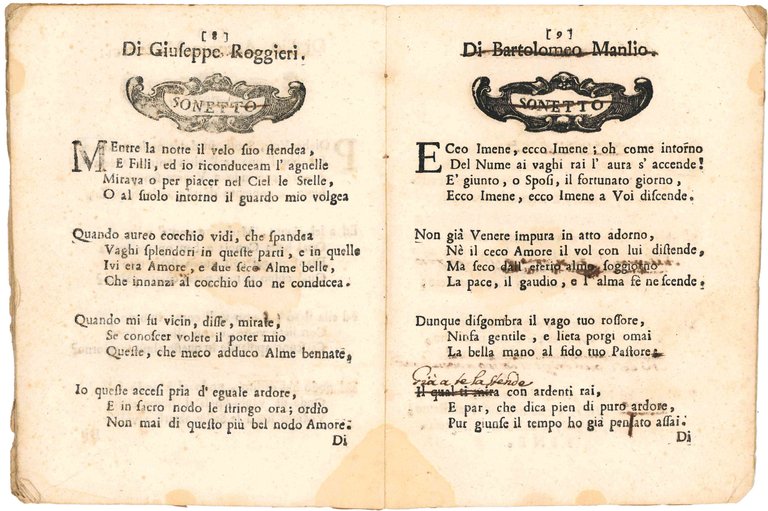 [8]
Di Giuseppe Roggieri.
SONETTO
MEntre la notte il velo suo stendea,
E Filli, ed io riconduceam l' agnelle
Mirava o per piacer nel Ciel le Stelle,
O al suolo intorno il guardo mio volgea
Quando aureo cocchio vidi, che spandea
Vaghi splendori in queste parti, e in quelle
Ivi era Amore, e due seco Alme belle,
Che innanzi al cocchio suo ne conducea.
Quando mi fu vicin, disse, mirate,
Se conoscer volete il poter mio
Queste, che meco adduco Alme bennate,
Io queste accesi pria d' eguale ardore,
E in sacro nodo le stringo ora; ordìo
Non mai di questo più bel nodo Amore.
Di
[9]
Di Bartolomeo Manlio.
SONETTO
ECco Imene, ecco Imene; oh come intorno
Del Nume ai vaghi rai l' aura s' accende!
E' giunto, o Sposi, il fortunato giorno,
Ecco Imene, ecco Imene a Voi discende.
Non già Venere impura in atto adorno,
Nè il ceco Amore il vol con lui distende,
Ma seco dall' eterio almo soggiorno
La pace, il gaudio, e l' alma fè ne scende.
Dunque disgombra il vago tuo rossore,
Ninfa gentile, e lieta porgi omai
La bella mano al fido tuo Pastore:
Già a te la stende
Il qual ti mira con ardenti rai,
E par, che dica pien di puro ardore,
Pur giunse il tempo ho già pensato assai.
Di